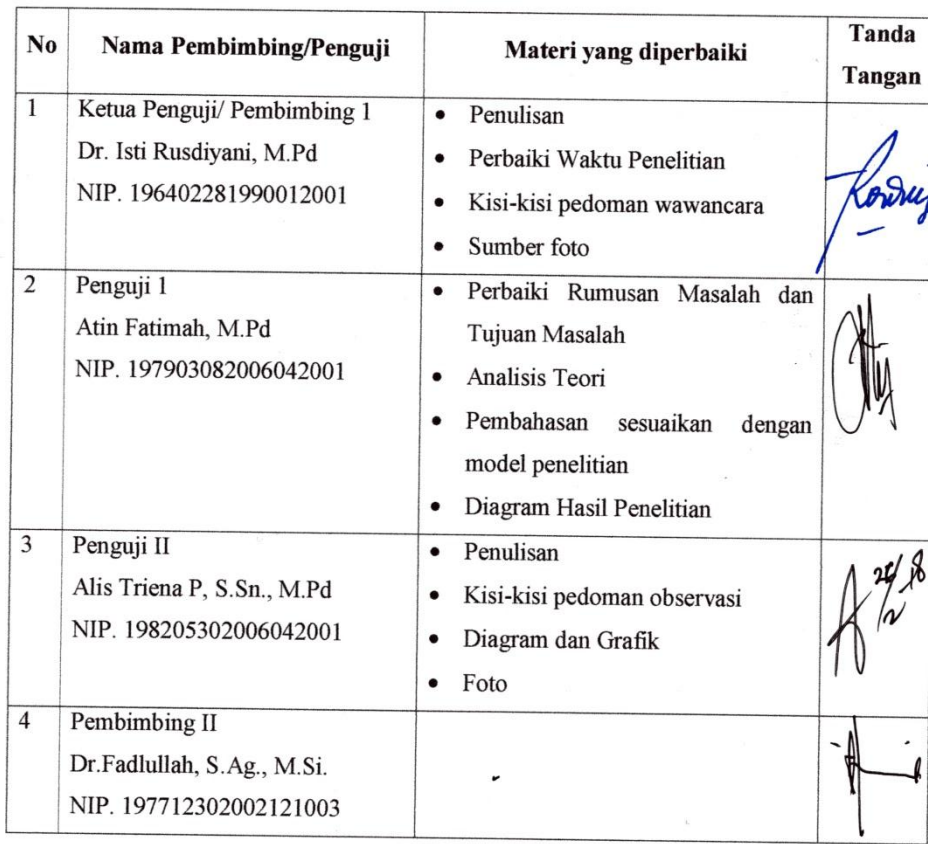 No
Nama Pembimbing/Penguji
Materi yang diperbaiki
Tanda
Tangan
1
Ketua Penguji/ Pembimbing 1
Dr. Isti Rusdiyani, M.Pd
NIP. 196402281990012001
• Penulisan
• Perbaiki Waktu Penelitian
• Kisi-kisi pedoman wawancara
• Sumber foto
2
Penguji 1
Atin Fatimah, M.Pd
NIP. 197903082006042001
• Perbaiki Rumusan Masalah dan
Tujuan Masalah
• Analisis Teori
• Pembahasan sesuaikan dengan
model penelitian
• Diagram Hasil Penelitian
3
Penguji II
Alis Triena P, S.Sn., M.Pd
NIP. 198205302006042001
• Penulisan
• Kisi-kisi pedoman observasi
• Diagram dan Grafik
• Foto
4
Pembimbing II
Dr.Fadlullah, S.Ag., M.Si.
NIP. 197712302002121003